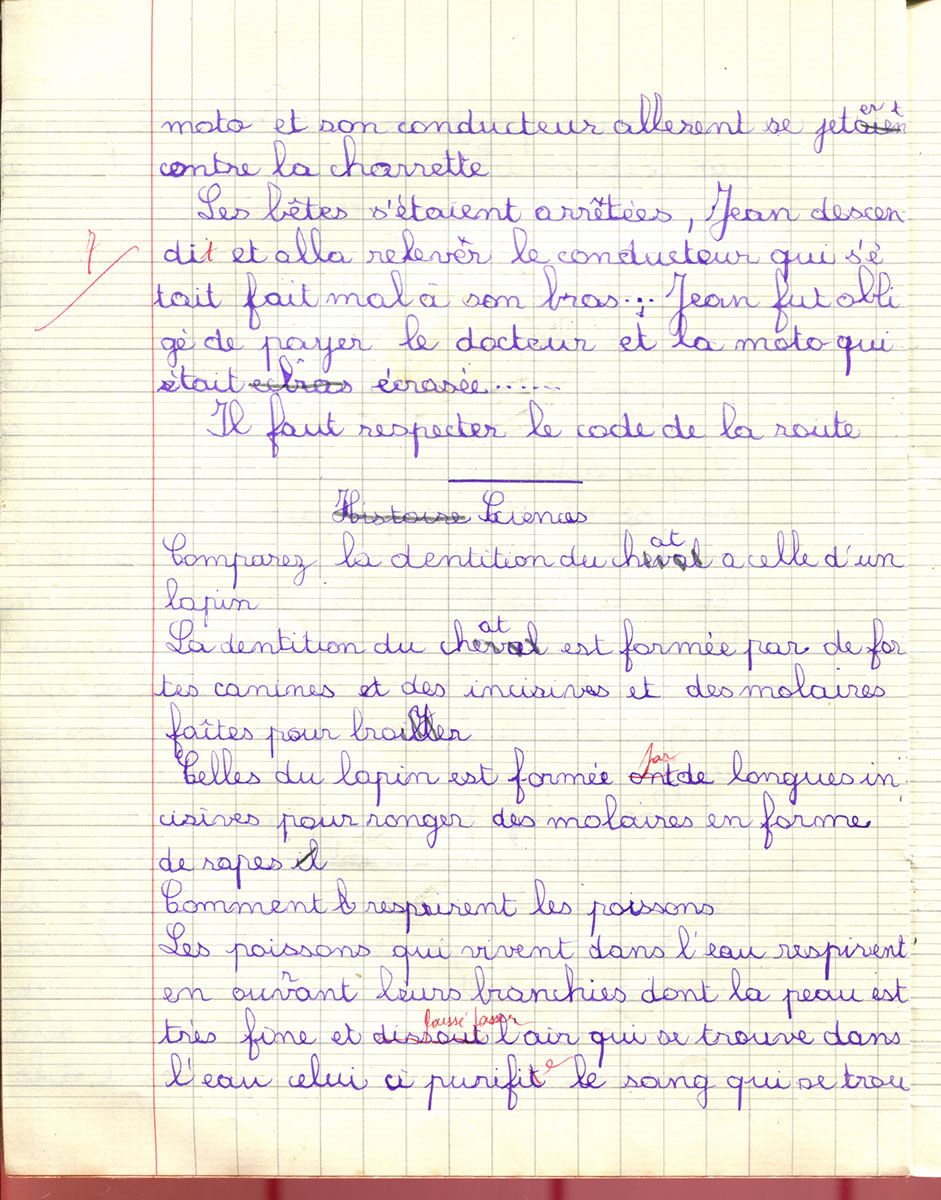 er t
moto et son conducteur allerent se jetaien
contre la charrette
Les bêtes s'étaient arrêtées, Jean descen
7
dit et alla relever le conducteur qui s'é
tait fait mal à son bras... Jean fut obli
gé de payer le docteur et la moto qui
était écrasée......
Il faut respecter le code de la route
Histoire Sciences
at
Comparez la dentition du cheval a celle d'un
lapin
at
La dentition du cheval est formée par de for
tes canines et des incisives et des molaires
faîtes pour
par
Celles du lapin est formée ont de longues in
cisives pour ronger des molaires en forme
de rapes il
Comment respirent les poissons
Les poissons qui vivent dans l'eau respirent
en ouvrant leurs branchies dont la peau est
laissé passer
très fine et dissout l'air qui se trouve dans
l'eau celui ci purifite le sang qui se trou